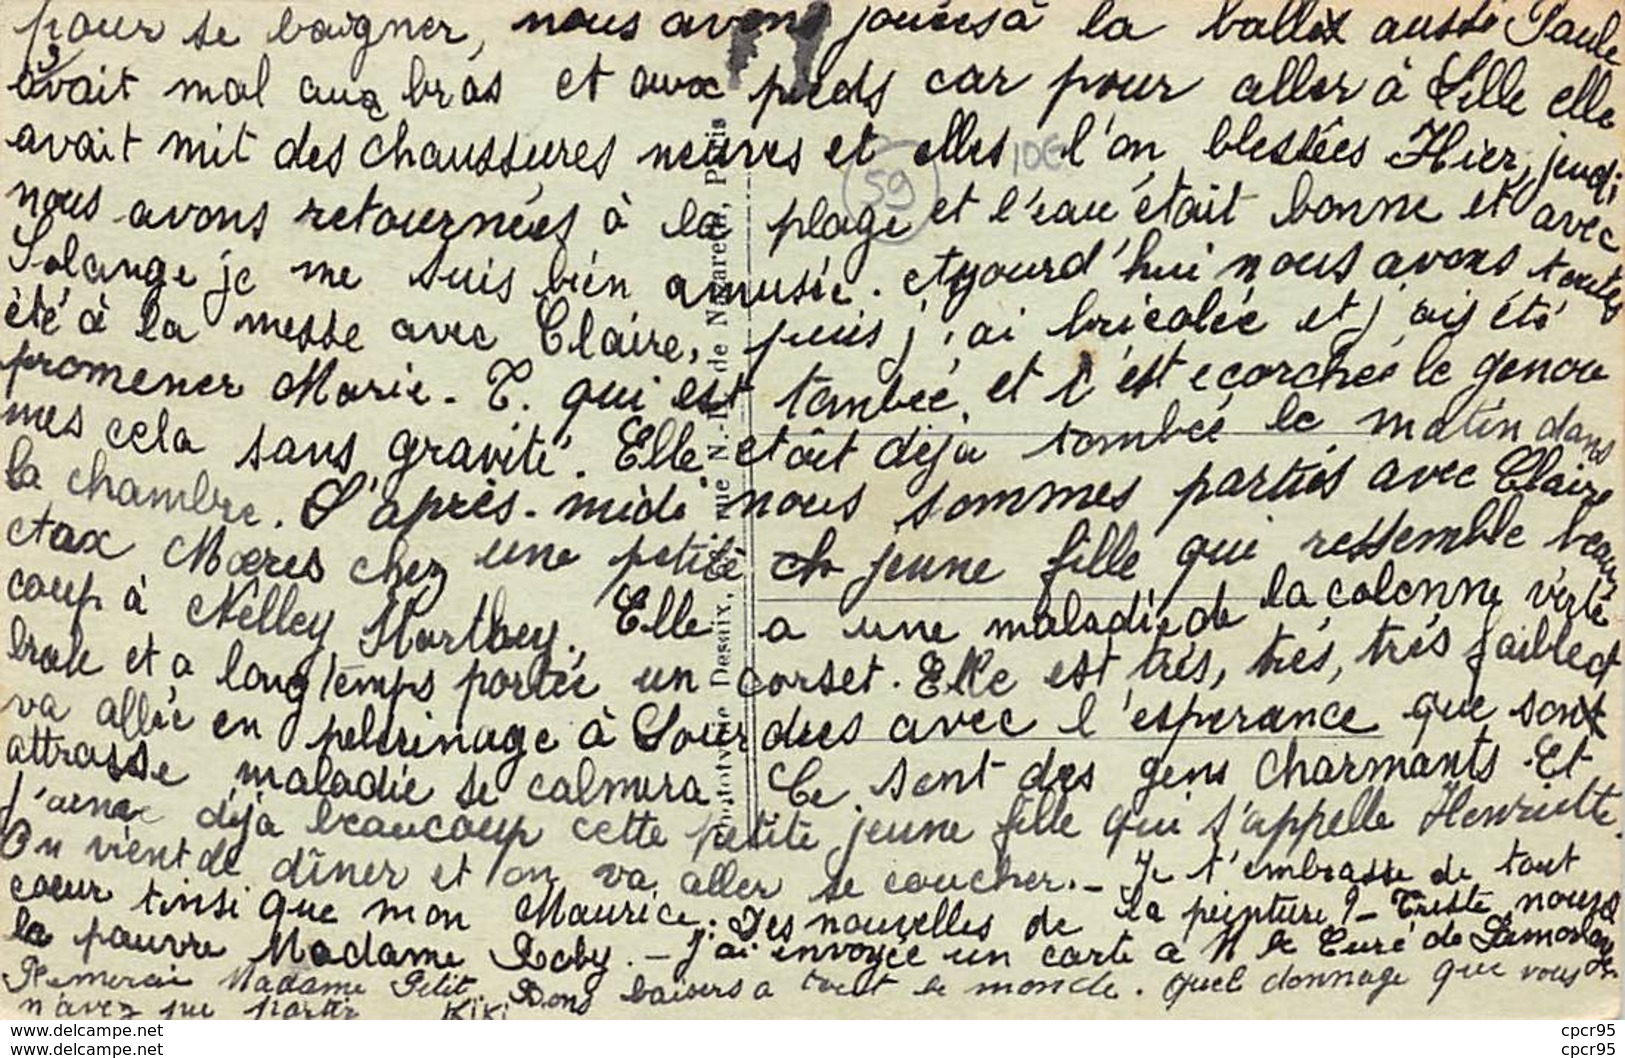 pour se baigner, nous avons jouées à la balle aussi Paule
avait mal aux bras et aux pieds car pour aller à Lille elle
avait mit des chaussures neuves et elles l'on blessées Hier, jeudi
nous avons retournées à la plage et l'eau était bonne et avec
Solange je me suis bien amusée. Aujourd'hui nous avons toutes
été à la messe avec Claire, puis j'ai bricolée et j'ais été
promener Marie-T. qui est tombée, et c'est ecorchée le genou
mes cela sans gravité. Elle etait déja tombée le matin dans
la chambre. L'après-midi nous sommes parties avec Claire
etax Moeres chez une petite jeune fille qui ressemble beau
coup à Nelley Hortbey. Elle a une maladie de la colonne verté
brale et a longtemps portée un corset. Elle est très, très, très faible et
va allée en pelerinage à Lourdes avec l'esperance que son
attrosse maladie se calmera. Ce sont des gens charmants. Et
j'aime déja beaucoup cette petite jeune fille qui s'appelle Henriette.
On vient de dîner et on va aller se coucher. - Je t'embrasse de tout
coeur tinsi que mon Maurice. Des nouvelles de la peinture? - Triste nouvelle
la pauvre Madame Roby. - J'ai envoyée un carte à M le Curé de Lamorlaye
Remerci Madame Petit. Bons baisers a tout le monde. Quel donnage que vous
n'avez pu partir Kiki
59
10€
Phototypie Desaix, rue N.-D. de Nazareth, Paris
cpcr95 cpcr95
cpcr95 cpcr95